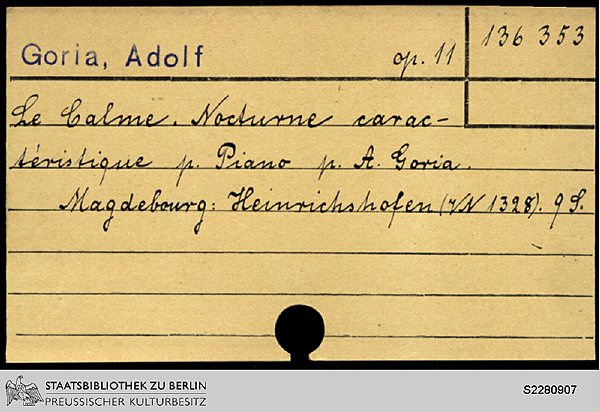 Goria, Adolf op. 11 136 353
Le Calme. Nocturne carac-
téristique p. Piano p. A. Goria.
Magdebourg: Heinrichshofen (VN 1328). 9 S.
STAATSBIBLIOTHEK ZU BERLIN
PREUSSISCHER KULTURBESITZ
S2280907